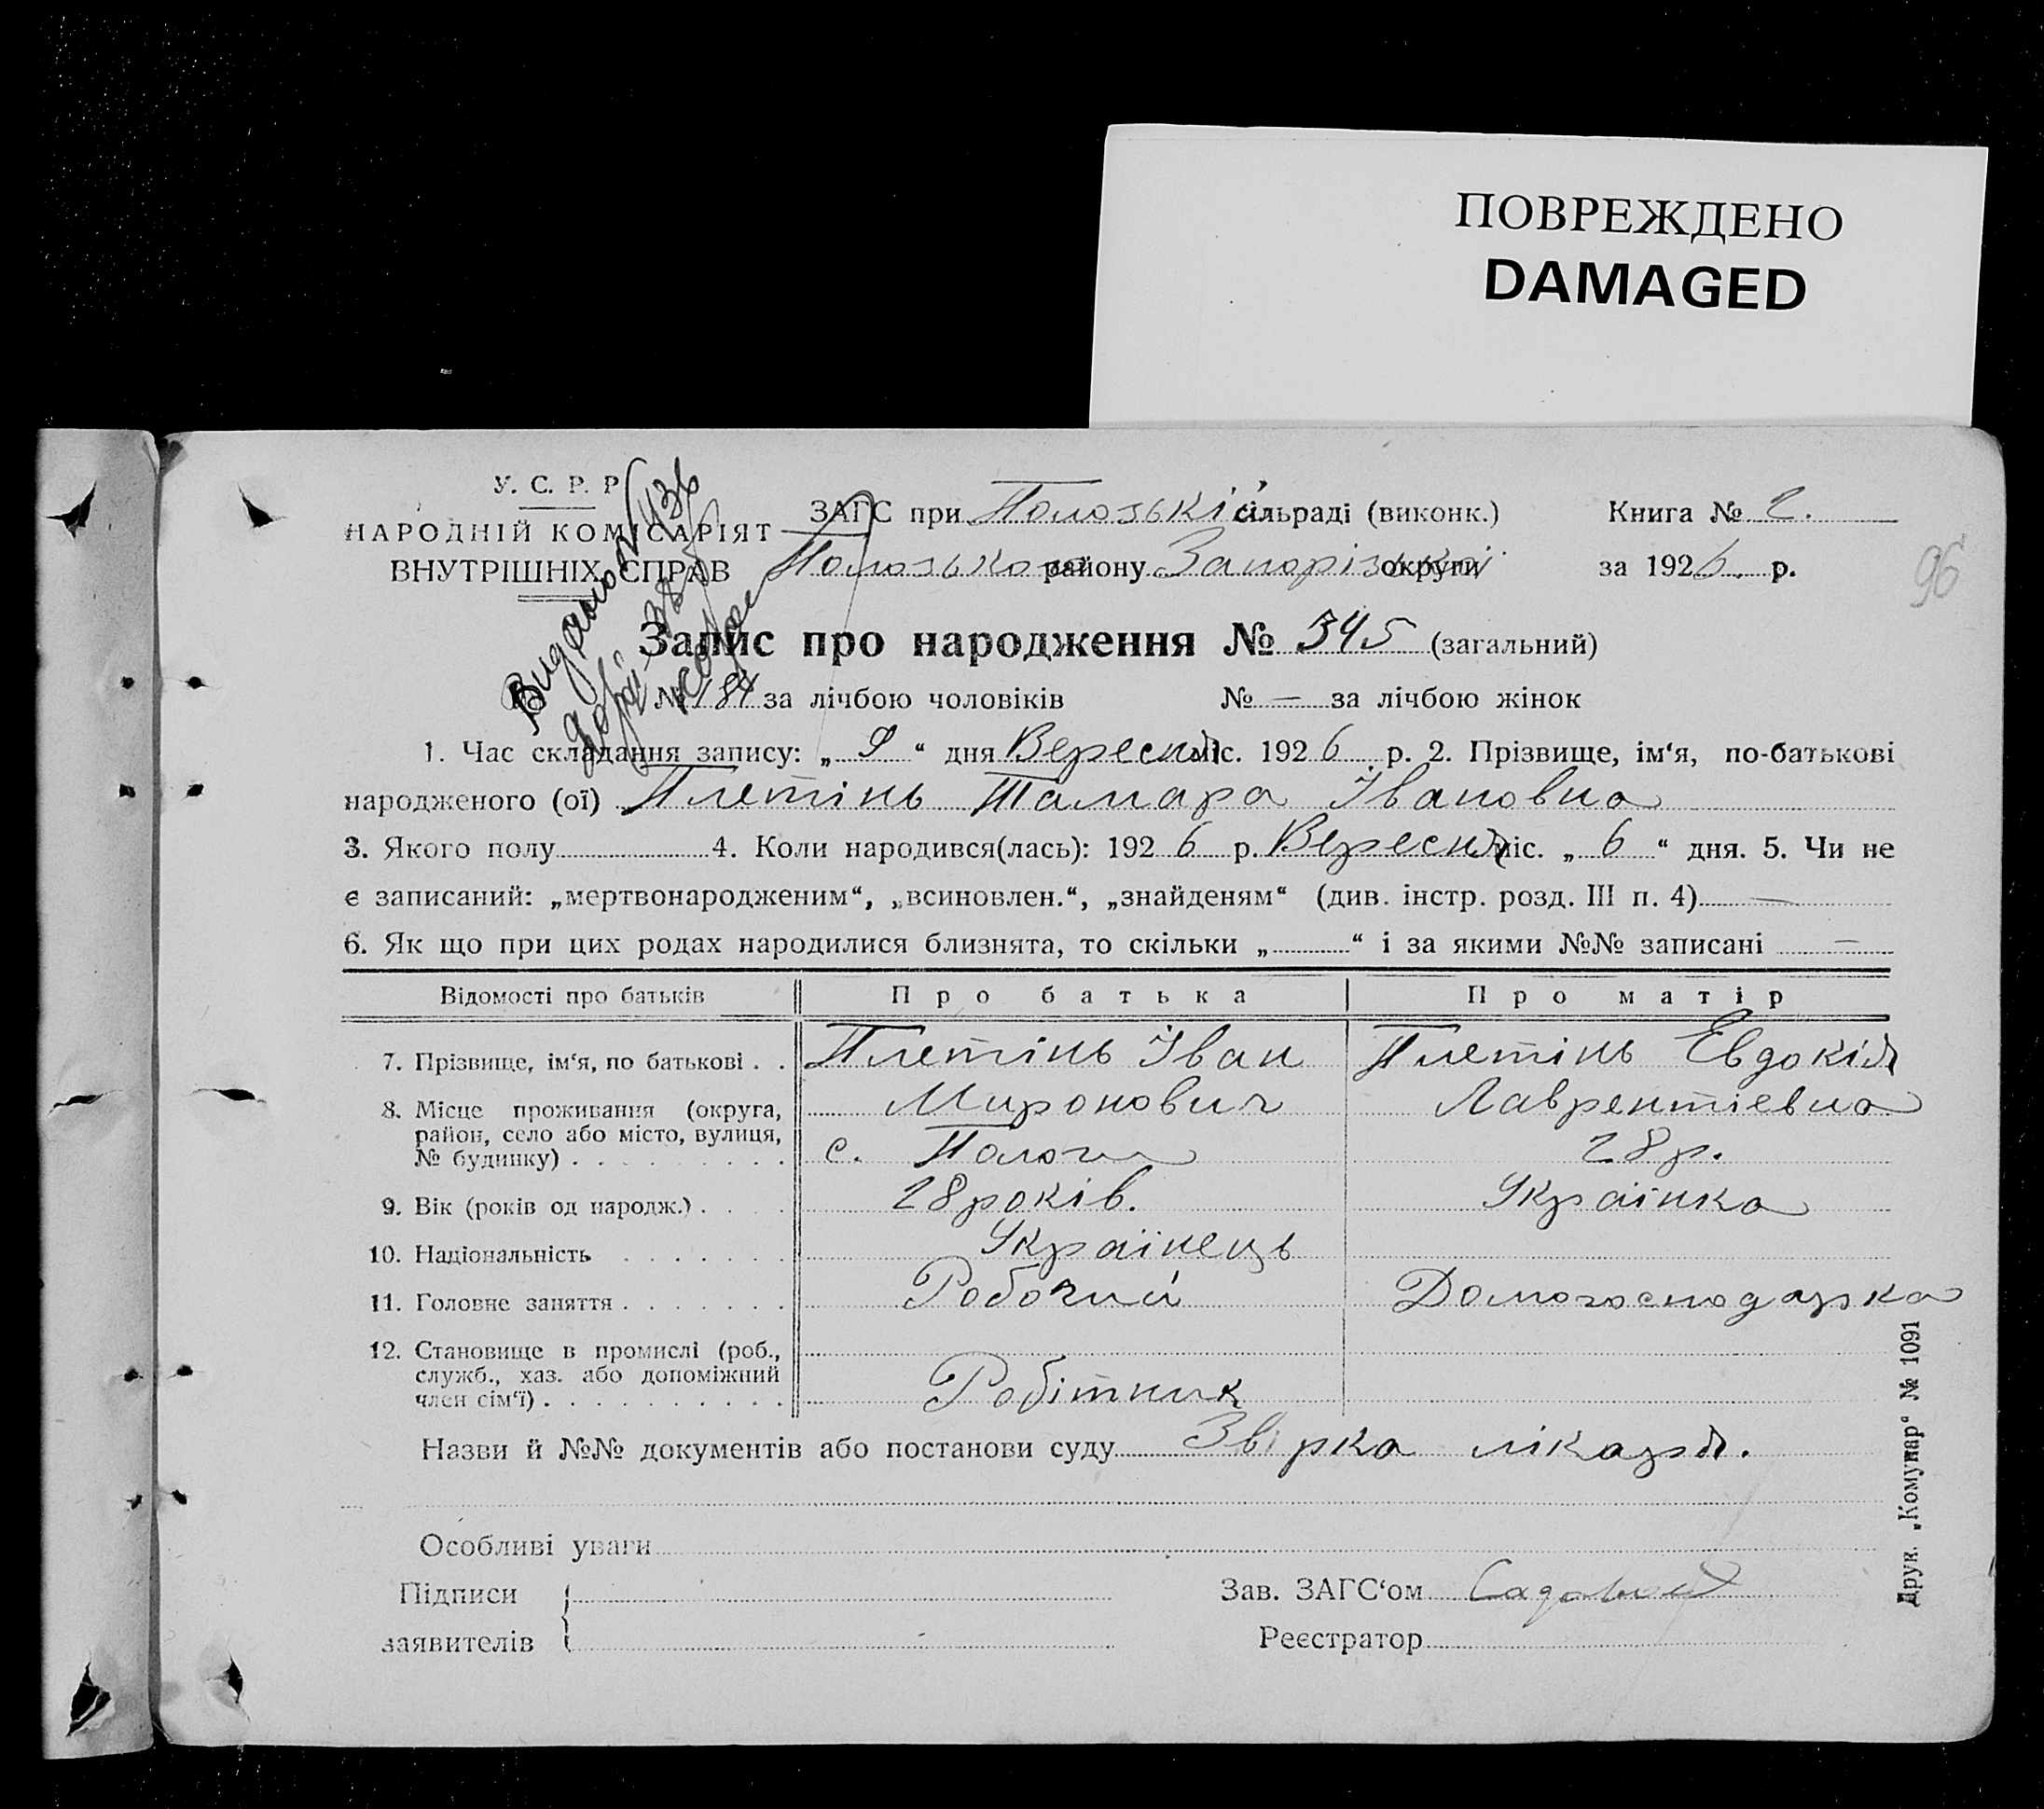 ПОВРЕЖДЕНО
DAMAGED
У. С. Р. Р.
НАРОДНІЙ КОМІСАРІЯТ
ВНУТРІШНІХ СПРАВ
Видано № 436
ЗАГС при Пологській сільраді (виконк.) Книга № 2.
Пологського району Запорізької округи за 1926. р.
96
Запис про народження № 345 (загальний)
№ 184 за лічбою чоловіків № — за лічбою жінок
1. Час складання запису: „ 9 “ дня Вересня міс. 1926 р. 2. Прізвище, ім‘я, по-батькові
народженого (ої) Плетінь Тамара Івановна
3. Якого полу 4. Коли народився(лась): 1926 р. Вересня міс. „ 6 “ дня. 5. Чи не
є записаний: „мертвонародженим“, „всиновлен.“, „знайденям“ (див. інстр. розд. III п. 4) —
6. Як що при цих родах народилися близнята, то скільки „ “ і за якими №№ записані —
Відомості про батьків Про батька Про матір
7. Прізвище, ім‘я, по батькові . . Плетінь Іван Плетінь Евдокія
Миронович Лаврентіевна
8. Місце проживання (округа,
район, село або місто, вулиця,
№ будинку) . . . . . . . . . с. Пологи 28 р.
9. Вік (років од народж.) . . . . 28 років. Українка
10. Національність . . . . . . . Українець
11. Головне заняття . . . . . . . Робочий Домогосподарка
12. Становище в промислі (роб.,
служб., хаз. або допоміжний
член сім‘ї) . . . . . . . . . . Робітник
Назви й №№ документів або постанови суду Звірка лікаря.
Особливі уваги
Підписи
заявителів
Зав. ЗАГС‘ом
Реєстратор
Друк. „Комунар“ № 1091